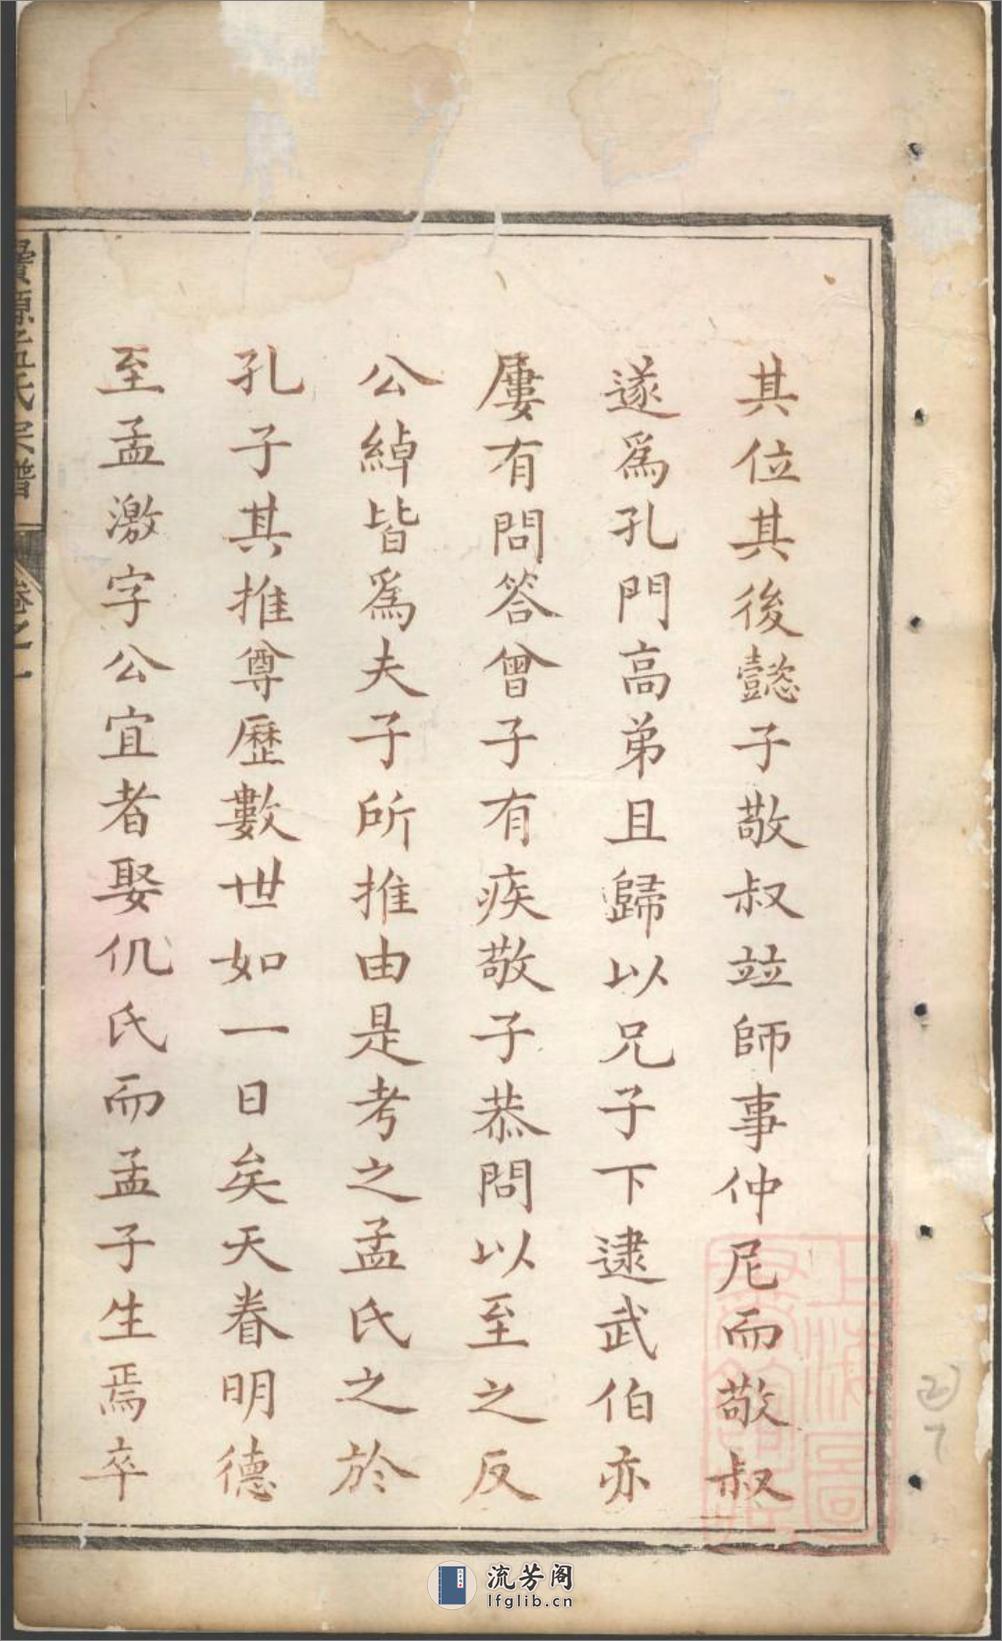 其位其後懿子敬叔竝師事仲尼而敬叔
遂爲孔門高弟且歸以兄子下逮武伯亦
屢有問答曾子有疾敬子恭問以至之反
公綽皆爲夫子所推由是考之孟氏之於
孔子其推尊歷數世如一日矣天眷明德
至孟激字公宜者娶仉氏而孟子生焉卒
氏宗譜
卷之一
上海圖
流芳阁
lfglib.cn